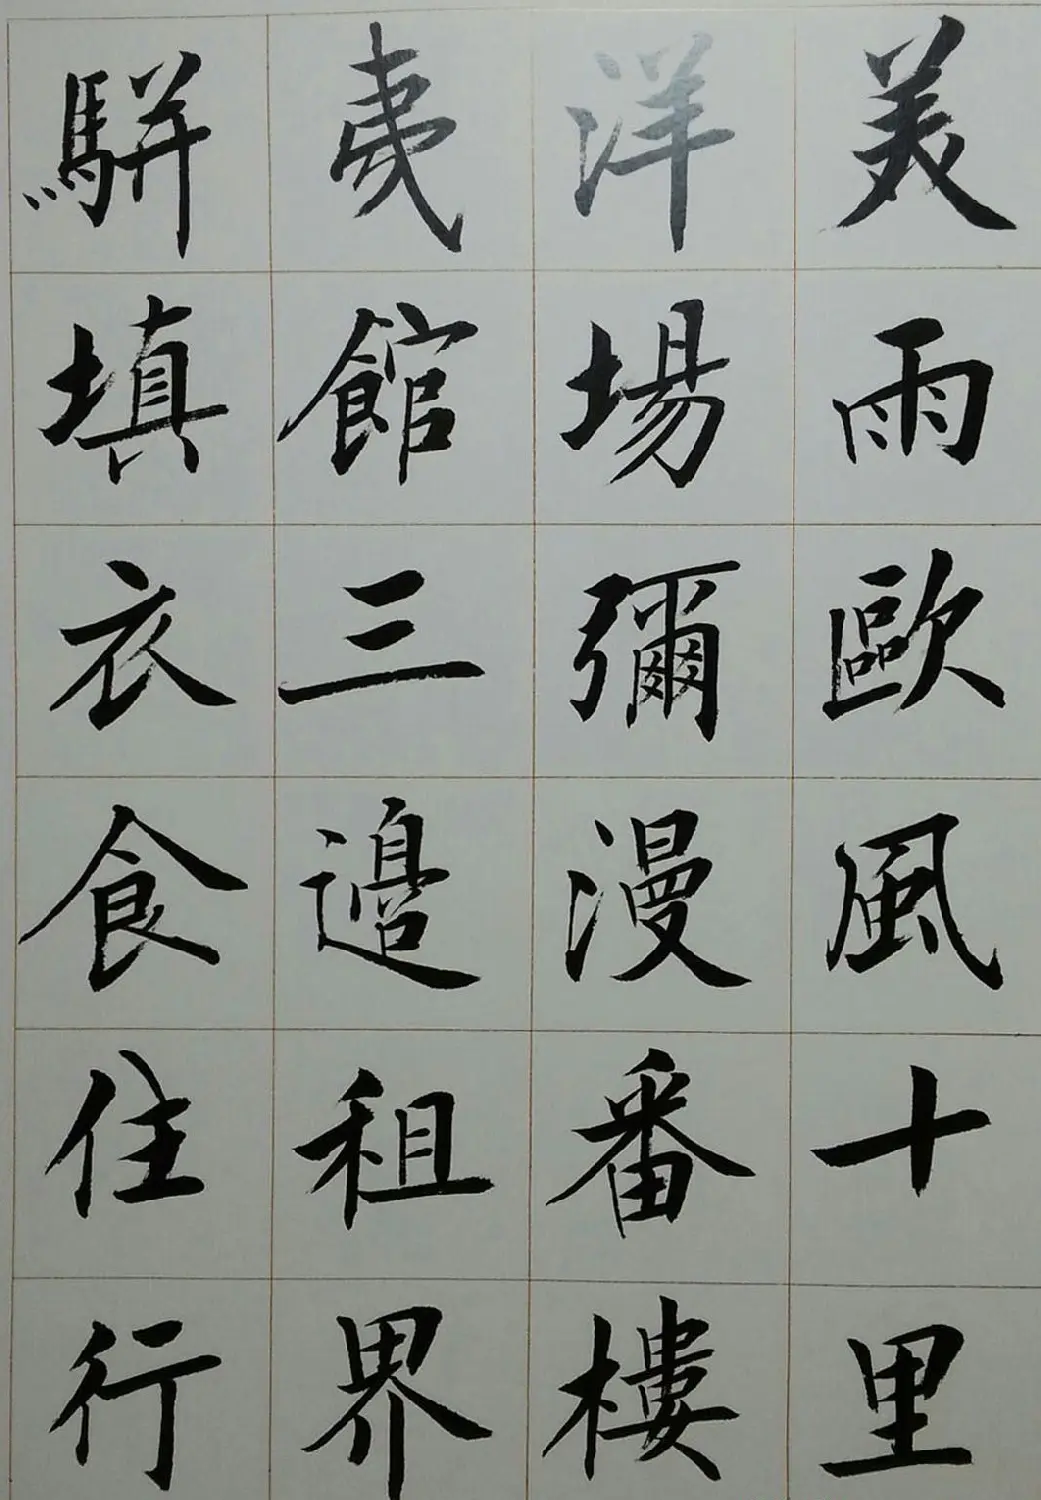 美雨歐風十里
洋場彌漫番樓
夷館三邊租界
駢填衣食住行